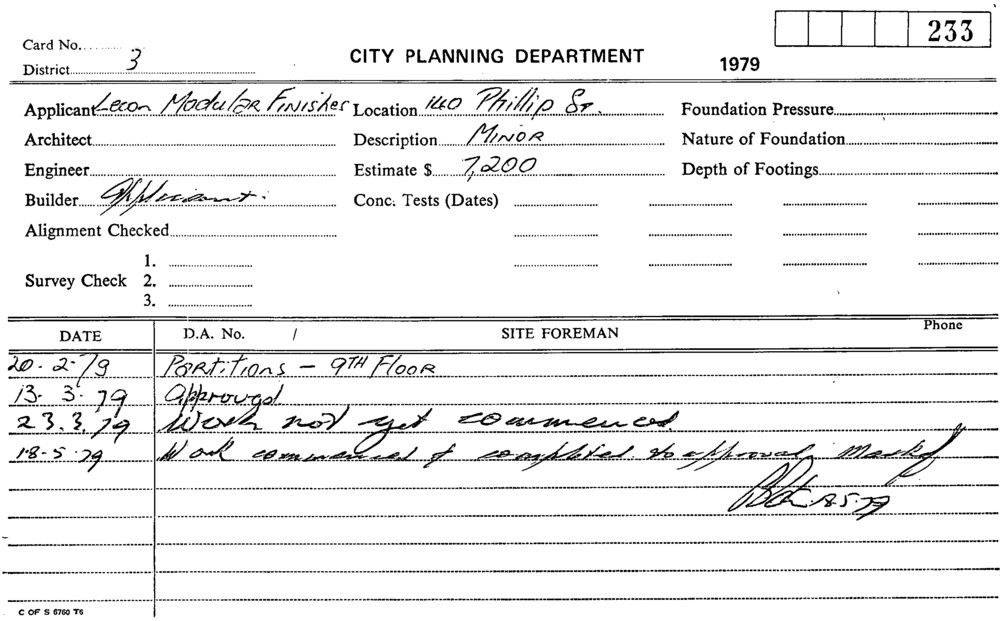 233
Card No.
District 3
CITY PLANNING DEPARTMENT
1979
Applicant Lecon Modular Finishes Location 140 Phillip St. Foundation Pressure
Architect Description Minor Nature of Foundation
Engineer Estimate $ 7,200 Depth of Footings
Builder Applicant. Conc. Tests (Dates)
Alignment Checked
1.
Survey Check 2.
3.
DATE D.A. No. / SITE FOREMAN Phone
20.2.79 Partitions - 9TH Floor
13.3.79 Approved
23.3.79 Work not yet commenced
18.5.79 Work commenced & completed to approval.
18.5.79
C OF S 6760 T6